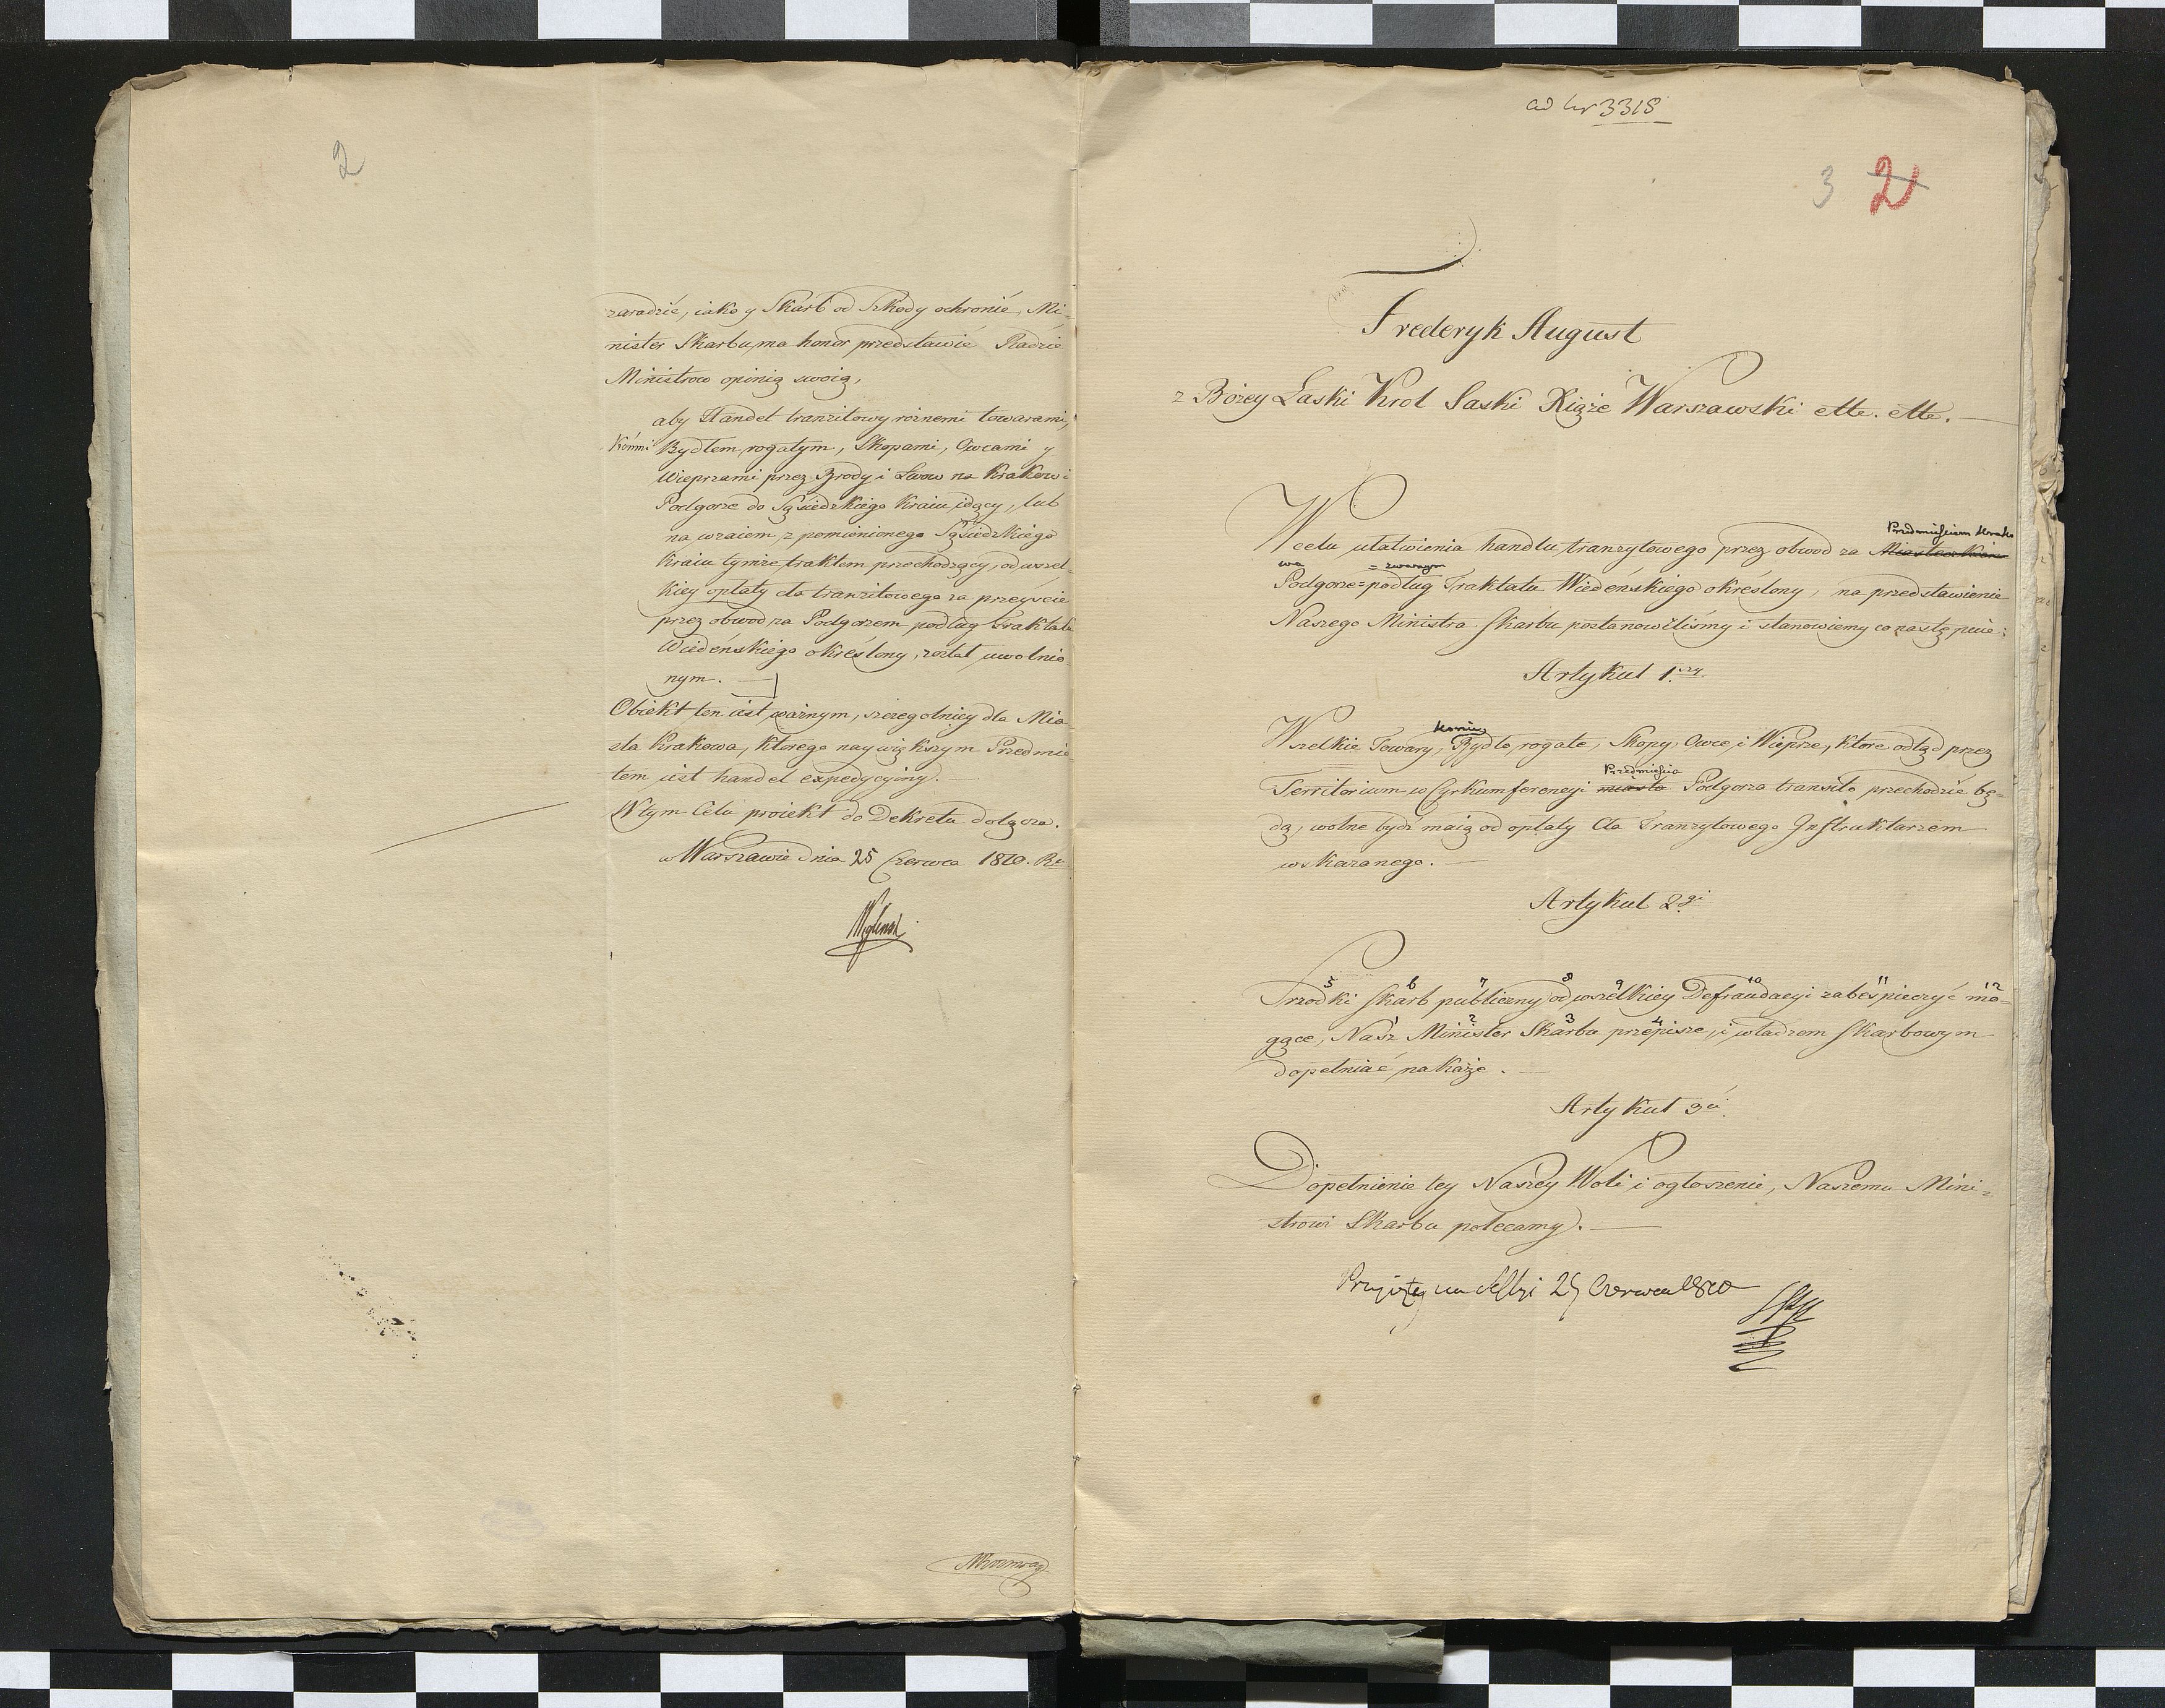 2
zaradzić, iako y Skarb od Szkody ochronić, Mi-
nister Skarbu, ma honor przedstawić Radzie
Ministrow opinią swoią,
aby Handel tranzitowy roznemi towarami,
Końmi Bydłem rogatym, Skopami, Owcami y
Wieprzami przez Brody i Lwow na Krakow i
Podgorze do Sąsiedzkiego Kraiu idący, lub
na wzaiem z pomienionego Sąsiedzkiego
Kraiu tymże traktem przechodzący, od wszel-
kiey opłaty cła tranzitowego za przeyście
przez obwod za Podgorzem podług Traktatu
Wiedeńskiego okreslony, został uwolnio-
nym.
Obiekt ten iest ważnym, szczegolniey dla Mia-
sta Krakowa, ktorego naywiększym Przedmio-
tem iest handel expedycyiny.
W tym Celu proiekt do Dekretu dołącza.
w Warszawie dnia 25 Czerwca 1810. Ru
ad Nr 3318
3 2
Frederyk August
z Bożey Łaski Krol Saski Xiąże Warszawski ettc. ettc.
Przedmieściem Krako
W celu ułatwienia handlu tranzytowego przez obwod za
wa = zwanym
Podgorze = podług Traktatu Wiedeńskiego okreslony, na przedstawienie
Naszego Ministra Skarbu postanowiliśmy i stanowiemy co następuie:
Artykuł 1.szy
Konie
Wszelkie Towary, Bydło rogate, Skopy, Owce i Wieprze, ktore odtąd przez
Przedmieścia
Territorium w Cyrkumferencyi miasta Podgorza transito przechodzić bę-
dą, wolne bydź maią od opłaty Cła Tranzytowego Instruktarzem
wskazanego.
Artykuł 2.gi
5 6 7 8 9 10 11 12
Srzodki Skarb publiczny od wszelkiey Defraudacyi zabespieczyć mo-
1 2 3 4
gące, Nasz Minister Skarbu przepisze, i władzom Skarbowym
dopełniać nakaże.
Artykuł 3.ci
Dopełnienie tey Naszey Woli i ogłoszenie, Naszemu Mini-
strowi Skarbu polecamy.
Przyięty na Sessyi 25 Czerwca 1810